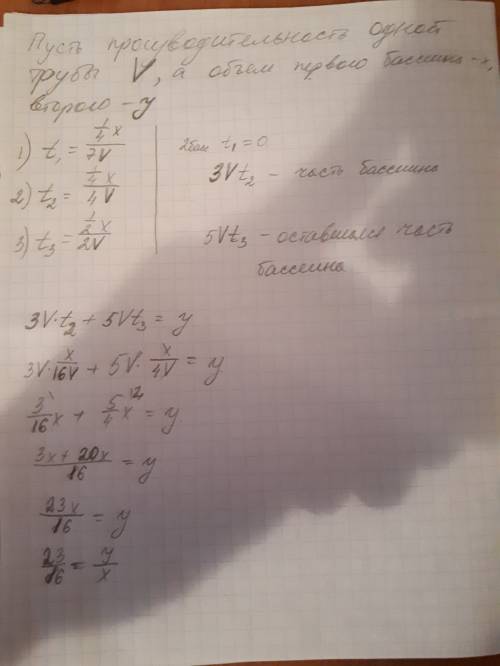 Пусть производительность одной
трубы V, а объем первого бассейна - x,
второго - y
1) t₁ = 1/4 x / 7V
2) t₂ = 1/4 x / 4V
3) t₃ = 1/2 x / 2V
2 бас t₁ = 0
3Vt₂ - часть бассейна
5Vt₃ - оставшаяся часть
бассейна
3V·t₂ + 5Vt₃ = y
3V · x/16V + 5V · x/4V = y
3/16 x + 5/4 x = y
3x + 20x / 16 = y
23x/16 = y
23/16 = y/x